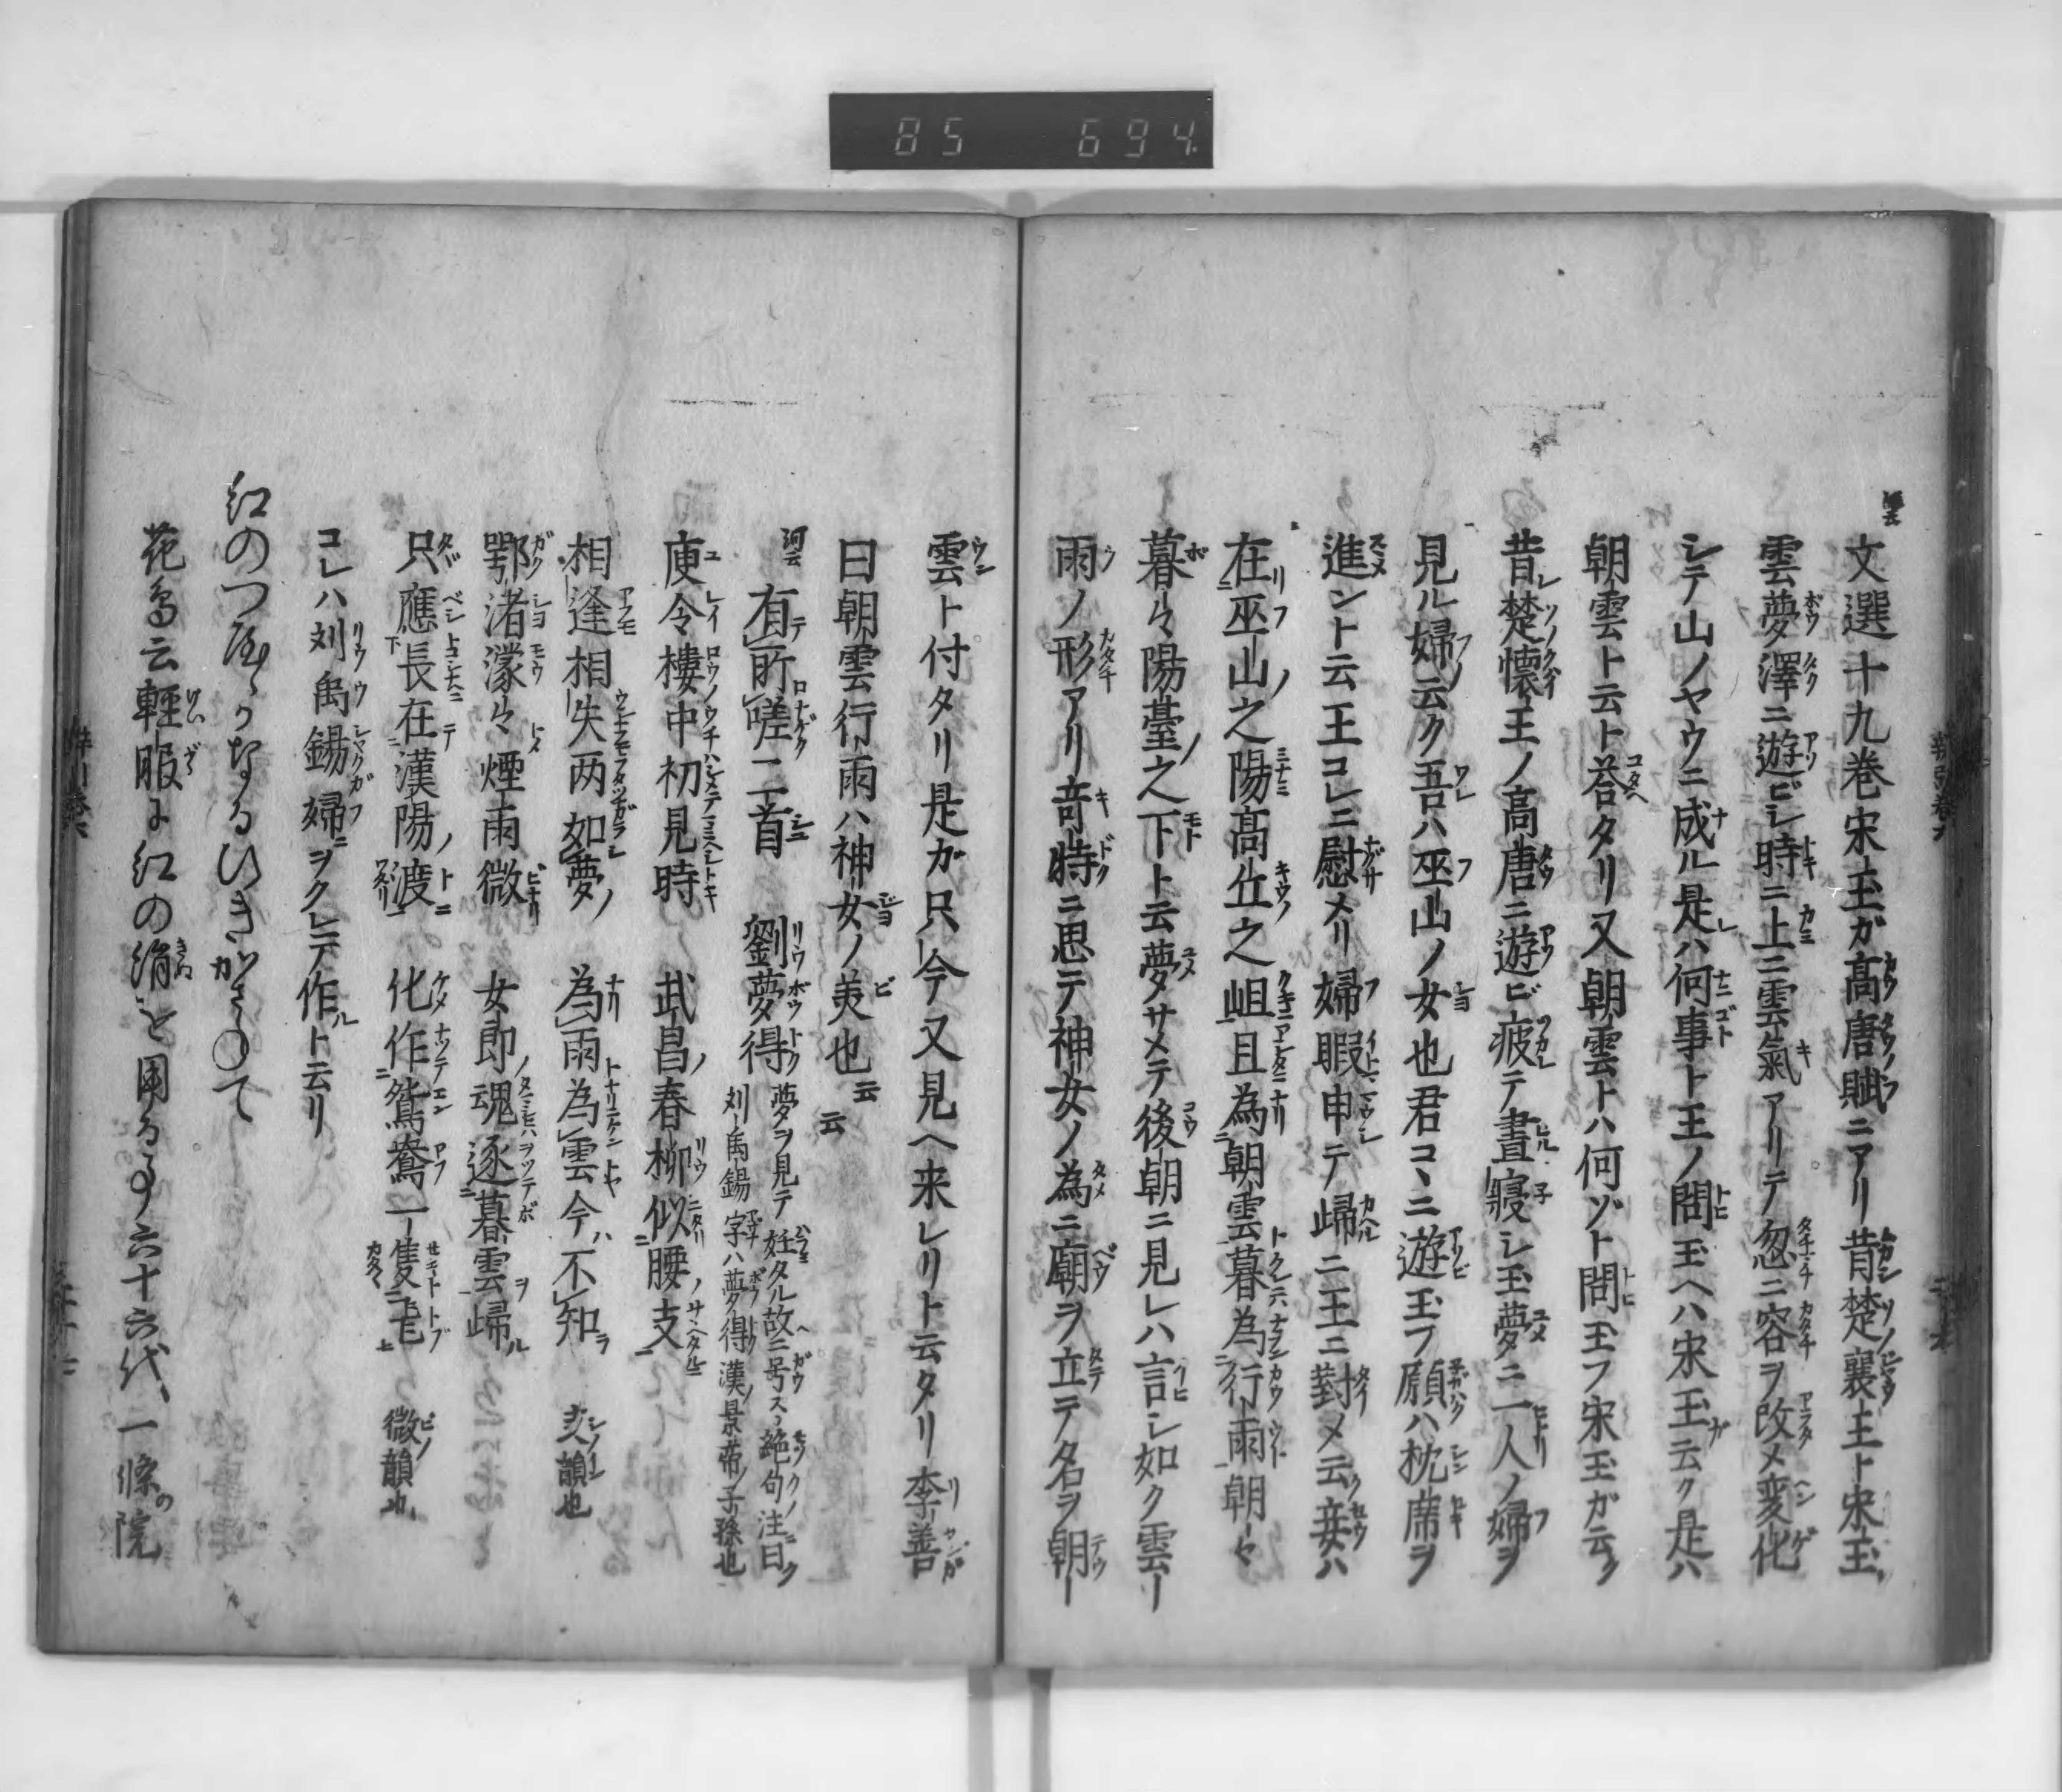 85 694
文選十九巻宋玉ガ髙唐賦ニアリ昔楚襄王ト宋玉
雲夢澤ニ遊ビシ時ニ上ニ雲氣アリテ忽ニ容ヲ改メ変化
シテ山ノヤウニ成ル是ハ何事ト王ノ問玉ヘハ宋玉云ク是ハ
朝雲ト云ト荅タリ又朝雲トハ何ゾト問玉フ宋玉ガ云ク
昔楚懷王ノ高唐ニ遊ビ疲テ晝寢シ玉夢ニ一人ノ婦ヲ
見ル婦云ク吾ハ巫山ノ女也君コヽニ遊玉フ願ハ枕席ヲ
進ントト云王コレニ慰メリ婦暇申テ歸ニ王ニ對メ云ク妾ハ
在巫山之陽髙丘之岨且為朝雲暮為行雨朝〻
暮〻陽䑓之下ト云夢サメテ後朝ニ見レハ言シ如ク雲
雨ノ形アリ竒特ニ思テ神女ノ為ニ廟ヲ立テ名ヲ朝
雲ト付タリ是ガ只今又見ヘ来レリト云タリ李善
曰朝雲行雨ハ神女ノ美也云云
河云 有所嗟二首 劉夢得 夢ヲ見テ妊タル故ニ号ス絶句注曰
刘禹錫字ハ夢得漢ノ景帝ノ子孫也
庾令樓中初見時 武昌春柳似腰支
相逢相失两如夢 為雨為雲今不知 支韻也
鄂渚濛〻煙雨微 女郎魂逐暮雲歸
只應長在漢陽渡 化作鴛鴦一隻飛 微韻也
コレハ刘禹錫婦ヲクレテ作ルト云リ
紅のつやゝかなるひきかさ〇て
花鳥云輕服に紅の絹を用る事六十六代一條の院